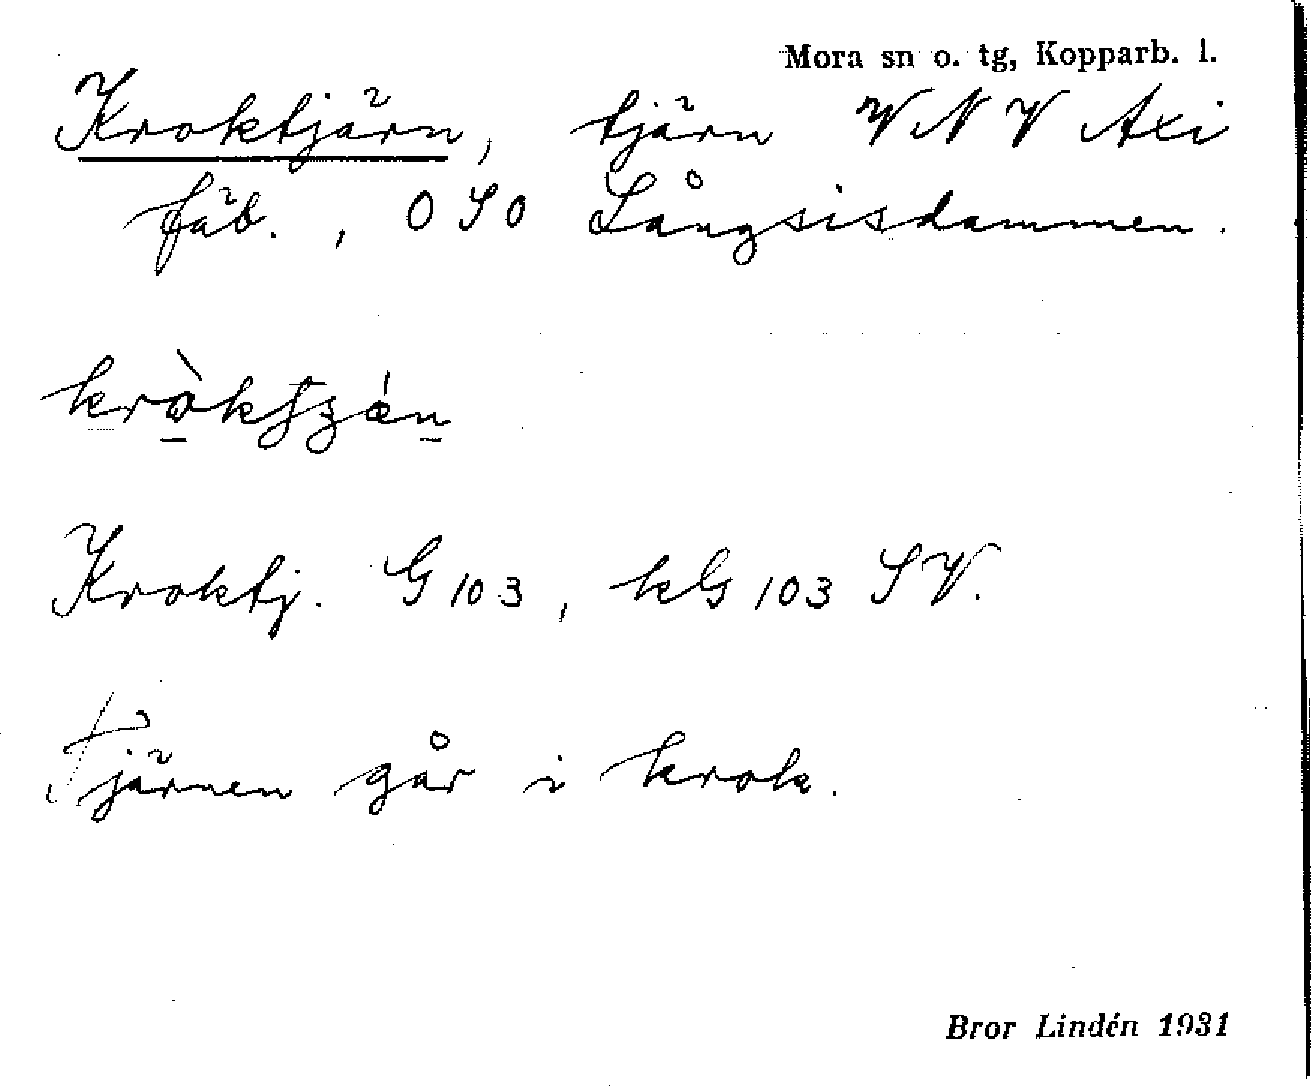 Mora sn o. tg, Kopparb. l.
Kroktjärn, tjärn VNV Axi
fäb., OSO Långsisdammen.
Kroktj. G 103, kG 103 SV.
Tjärnen går i krok.
Bror Lindén 1931